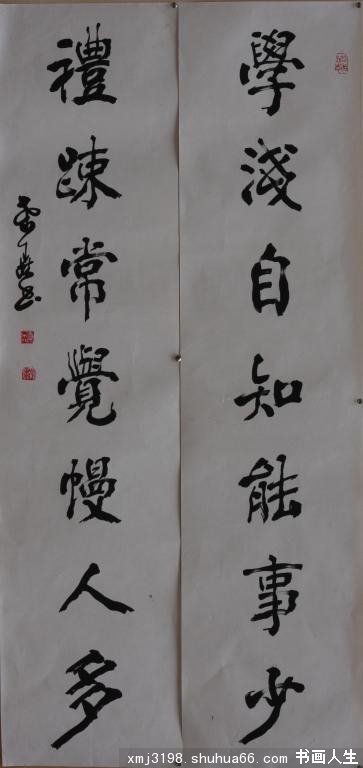 學淺自知能事少
禮疎常覺幔人多
xmj3198.shuhua66.com 书画人生